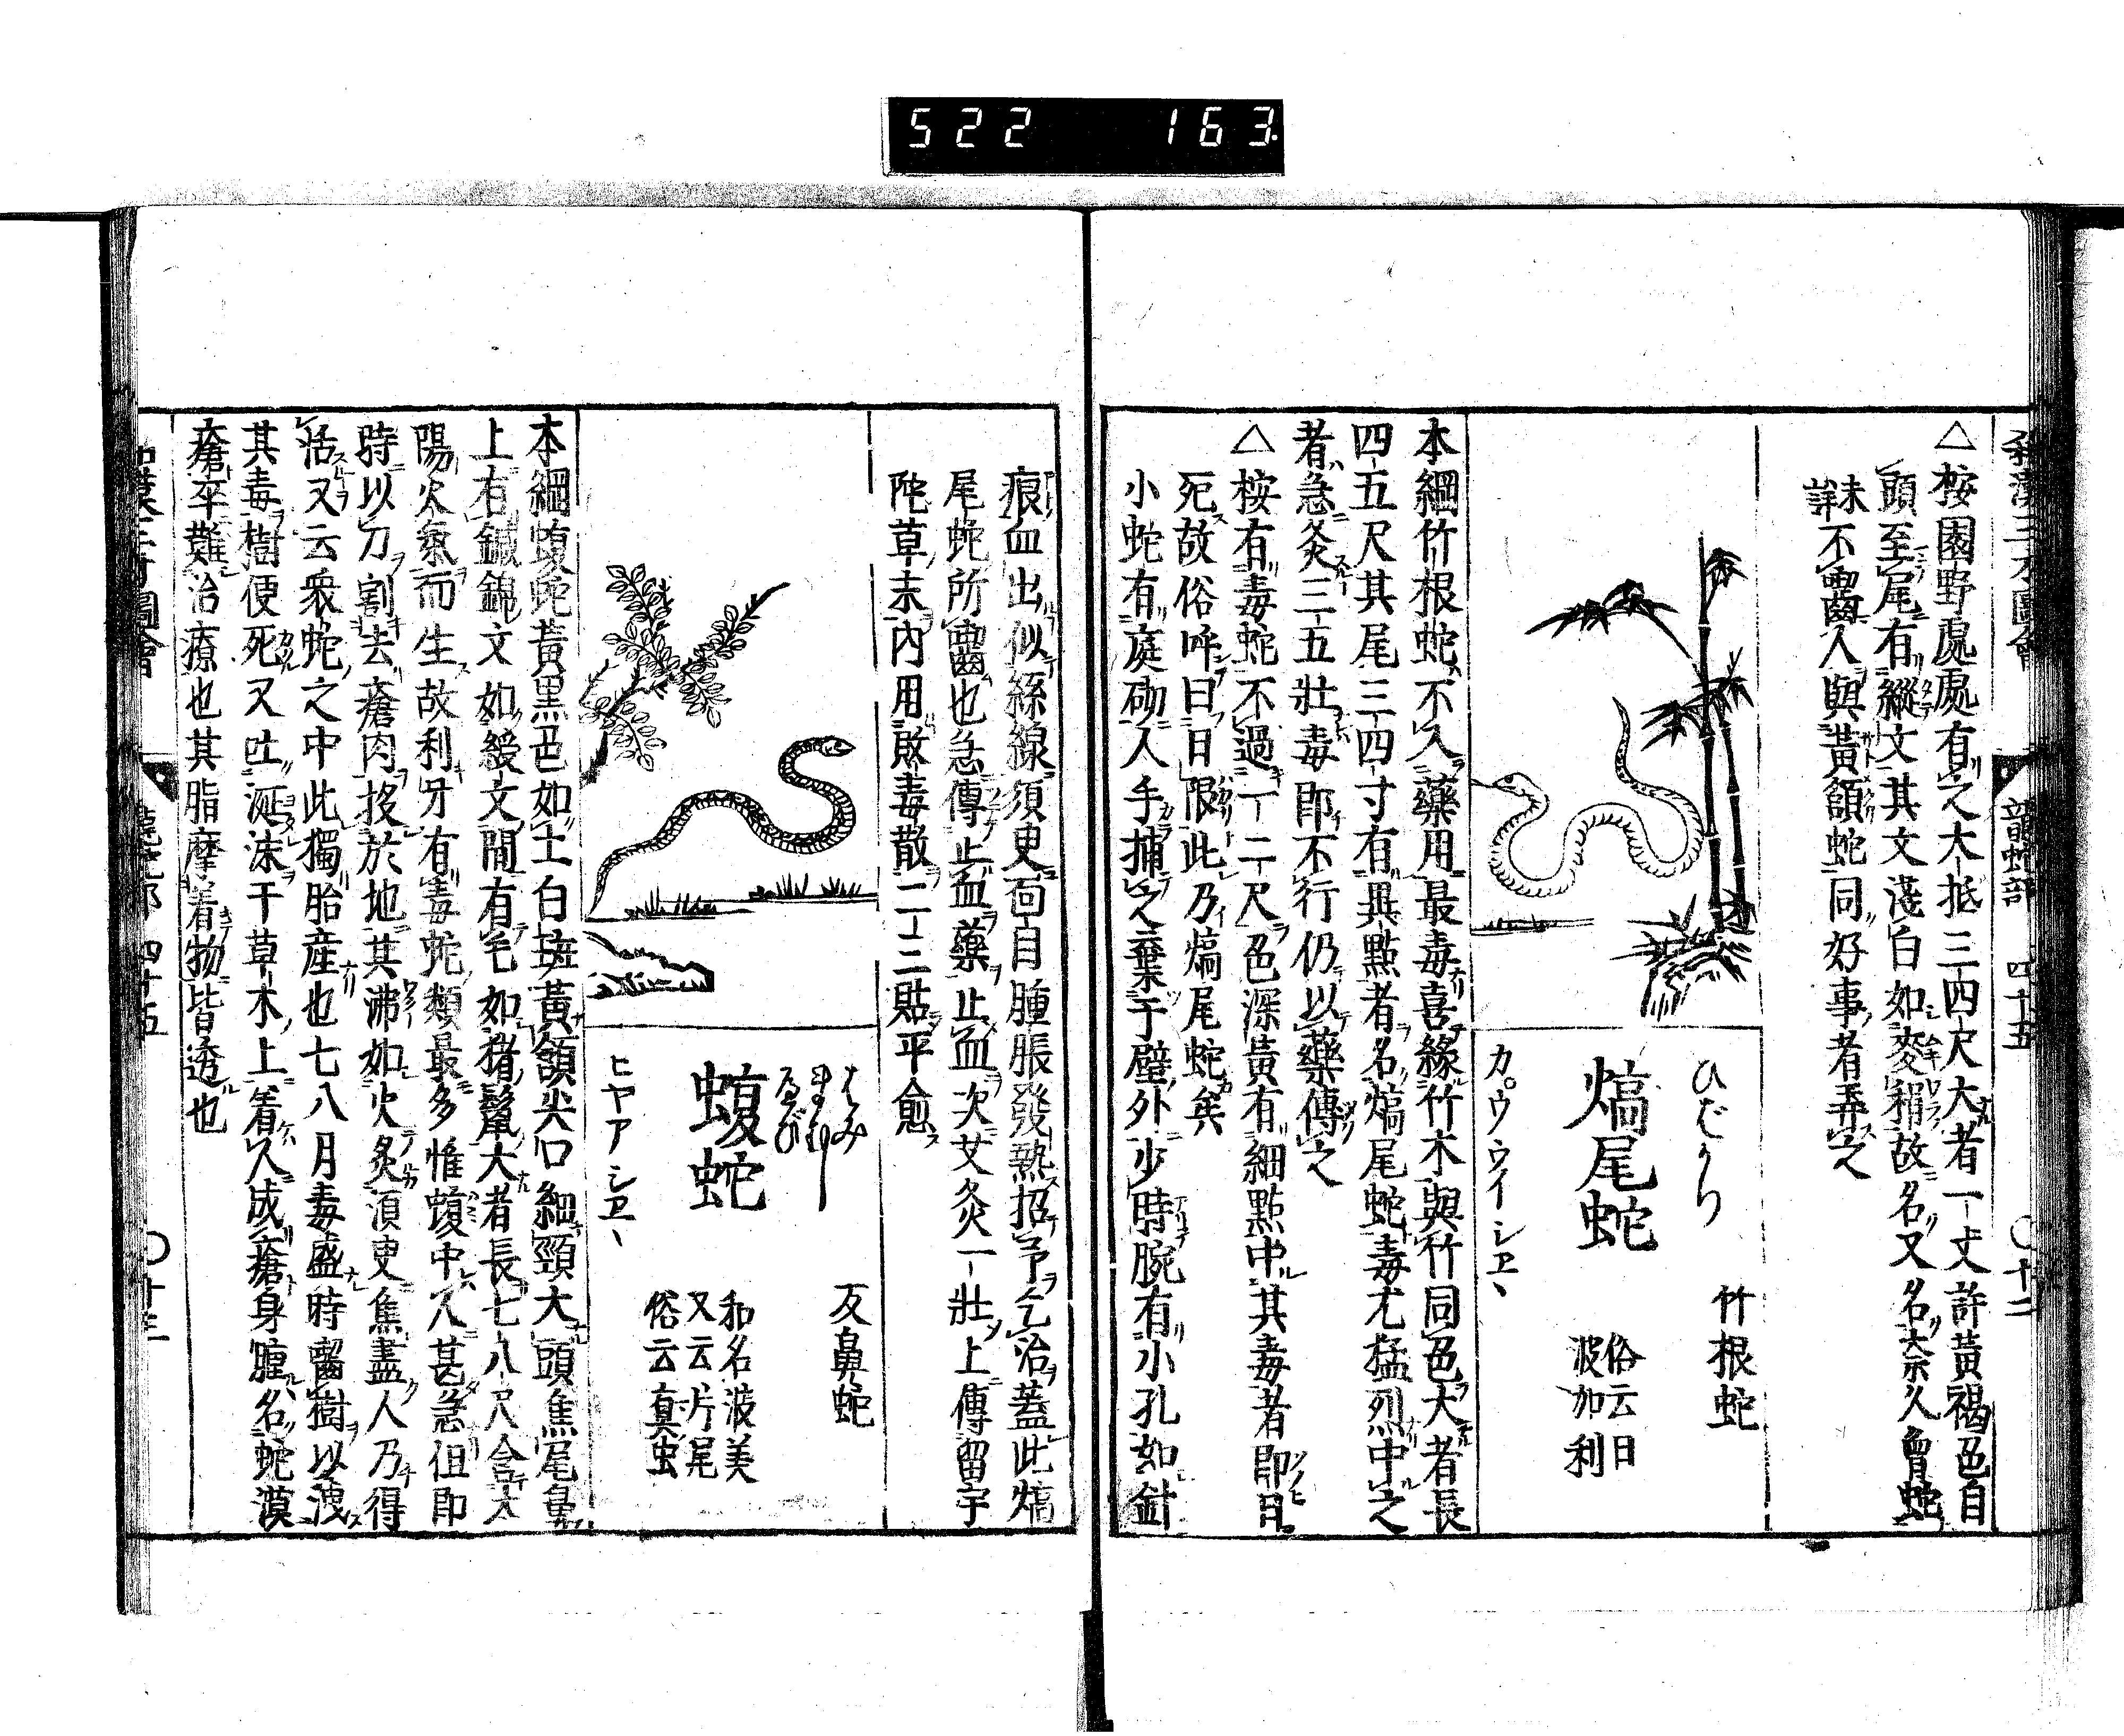 522 163
和漢三才圖會 龍蛇部 四十五 〇十二
△桉園野處處有之大抵三四尺大者一丈許黃褐色自
頭至尾有縱文其文淺白如麥稍故名又名奈久曾蛇
未詳不囓人與黃頷蛇同好事者弄之
ひばかり
熇尾蛇
カ゚ウ ウイ シヱヽ
竹根蛇
俗云日
波加利
本綱竹根蛇不入藥用最毒喜緣竹木與竹同色大者長
四五尺其尾三四寸有異點者名熇尾蛇毒尤猛烈中之
者急灸三五壯毒即不行仍以藥傅之
△桉有毒蛇不過一二尺色深黃有細點中其毒者即日
死故俗呼曰日限此乃熇尾蛇矣
小蛇有庭砌人手捕之棄于壁外少時腕有小孔如針
痕血出似絲線須臾面目腫脹發熱招予乞治蓋此熇
尾蛇所囓也急傅止血藥止血次艾灸一壯上傅留宇
陀草末內用敗毒散二三貼平愈
はみ
蝮蛇
ヒヤアシヱヽ
反鼻蛇
和名波美
又云片尾
俗云真虫
本綱蝮蛇黃黑色如土白斑黃頷尖口細頸大頭焦尾鼻
上有鍼錦文如綬文間有毛如猪鬣大者長七八尺合太
陽火氣而生故利牙有毒蛇類最多惟蝮中人甚急但即
時以刀割去瘡肉投於地其沸如火炙須臾焦盡人乃得
活又云衆蛇之中此獨胎產也七八月毒盛時囓樹以洩
其毒樹便死又吐涎沫于草木上着人成瘡身腫名蛇漠
瘡卒難治療也其脂摩着物皆透也